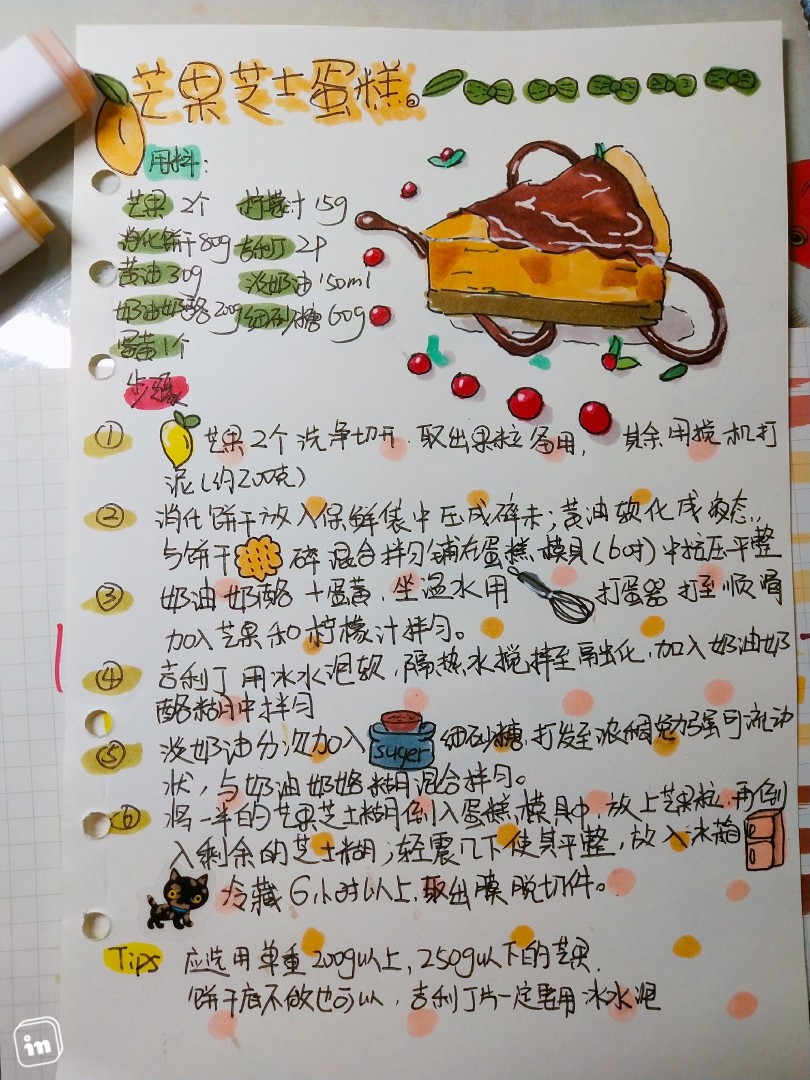 芒果芝士蛋糕。
用料:
芒果 2个 柠檬汁 15g
消化饼干 80g 吉利丁 2P
黄油 30g 淡奶油 150ml
奶油奶酪 200g 细砂糖 60g
蛋黄 1个
步骤
① 芒果2个洗净切开,取出果粒备用,其余用搅机打
泥(约200克)
② 消化饼干放入保鲜袋中压成碎末;黄油软化成液态,
与饼干碎混合拌匀铺在蛋糕模具(6吋)中按压平整
③ 奶油奶酪+蛋黄,坐温水用打蛋器打至顺滑
加入芒果和柠檬汁拌匀。
④ 吉利丁用冰水泡软,隔热水搅拌至融化,加入奶油奶
酪糊中拌匀
⑤ 淡奶油分次加入suger细砂糖,打发至浓稠勉强可流动
状,与奶油奶酪糊混合拌匀。
⑥ 将一半的芒果芝士糊倒入蛋糕模具中,放上芒果粒,再倒
入剩余的芝士糊;轻震几下使其平整,放入冰箱
冷藏6小时以上,取出膜脱切件。
Tips 应选用单重200g以上,250g以下的芒果.
饼干底不做也可以,吉利丁片一定要用冰水泡
in